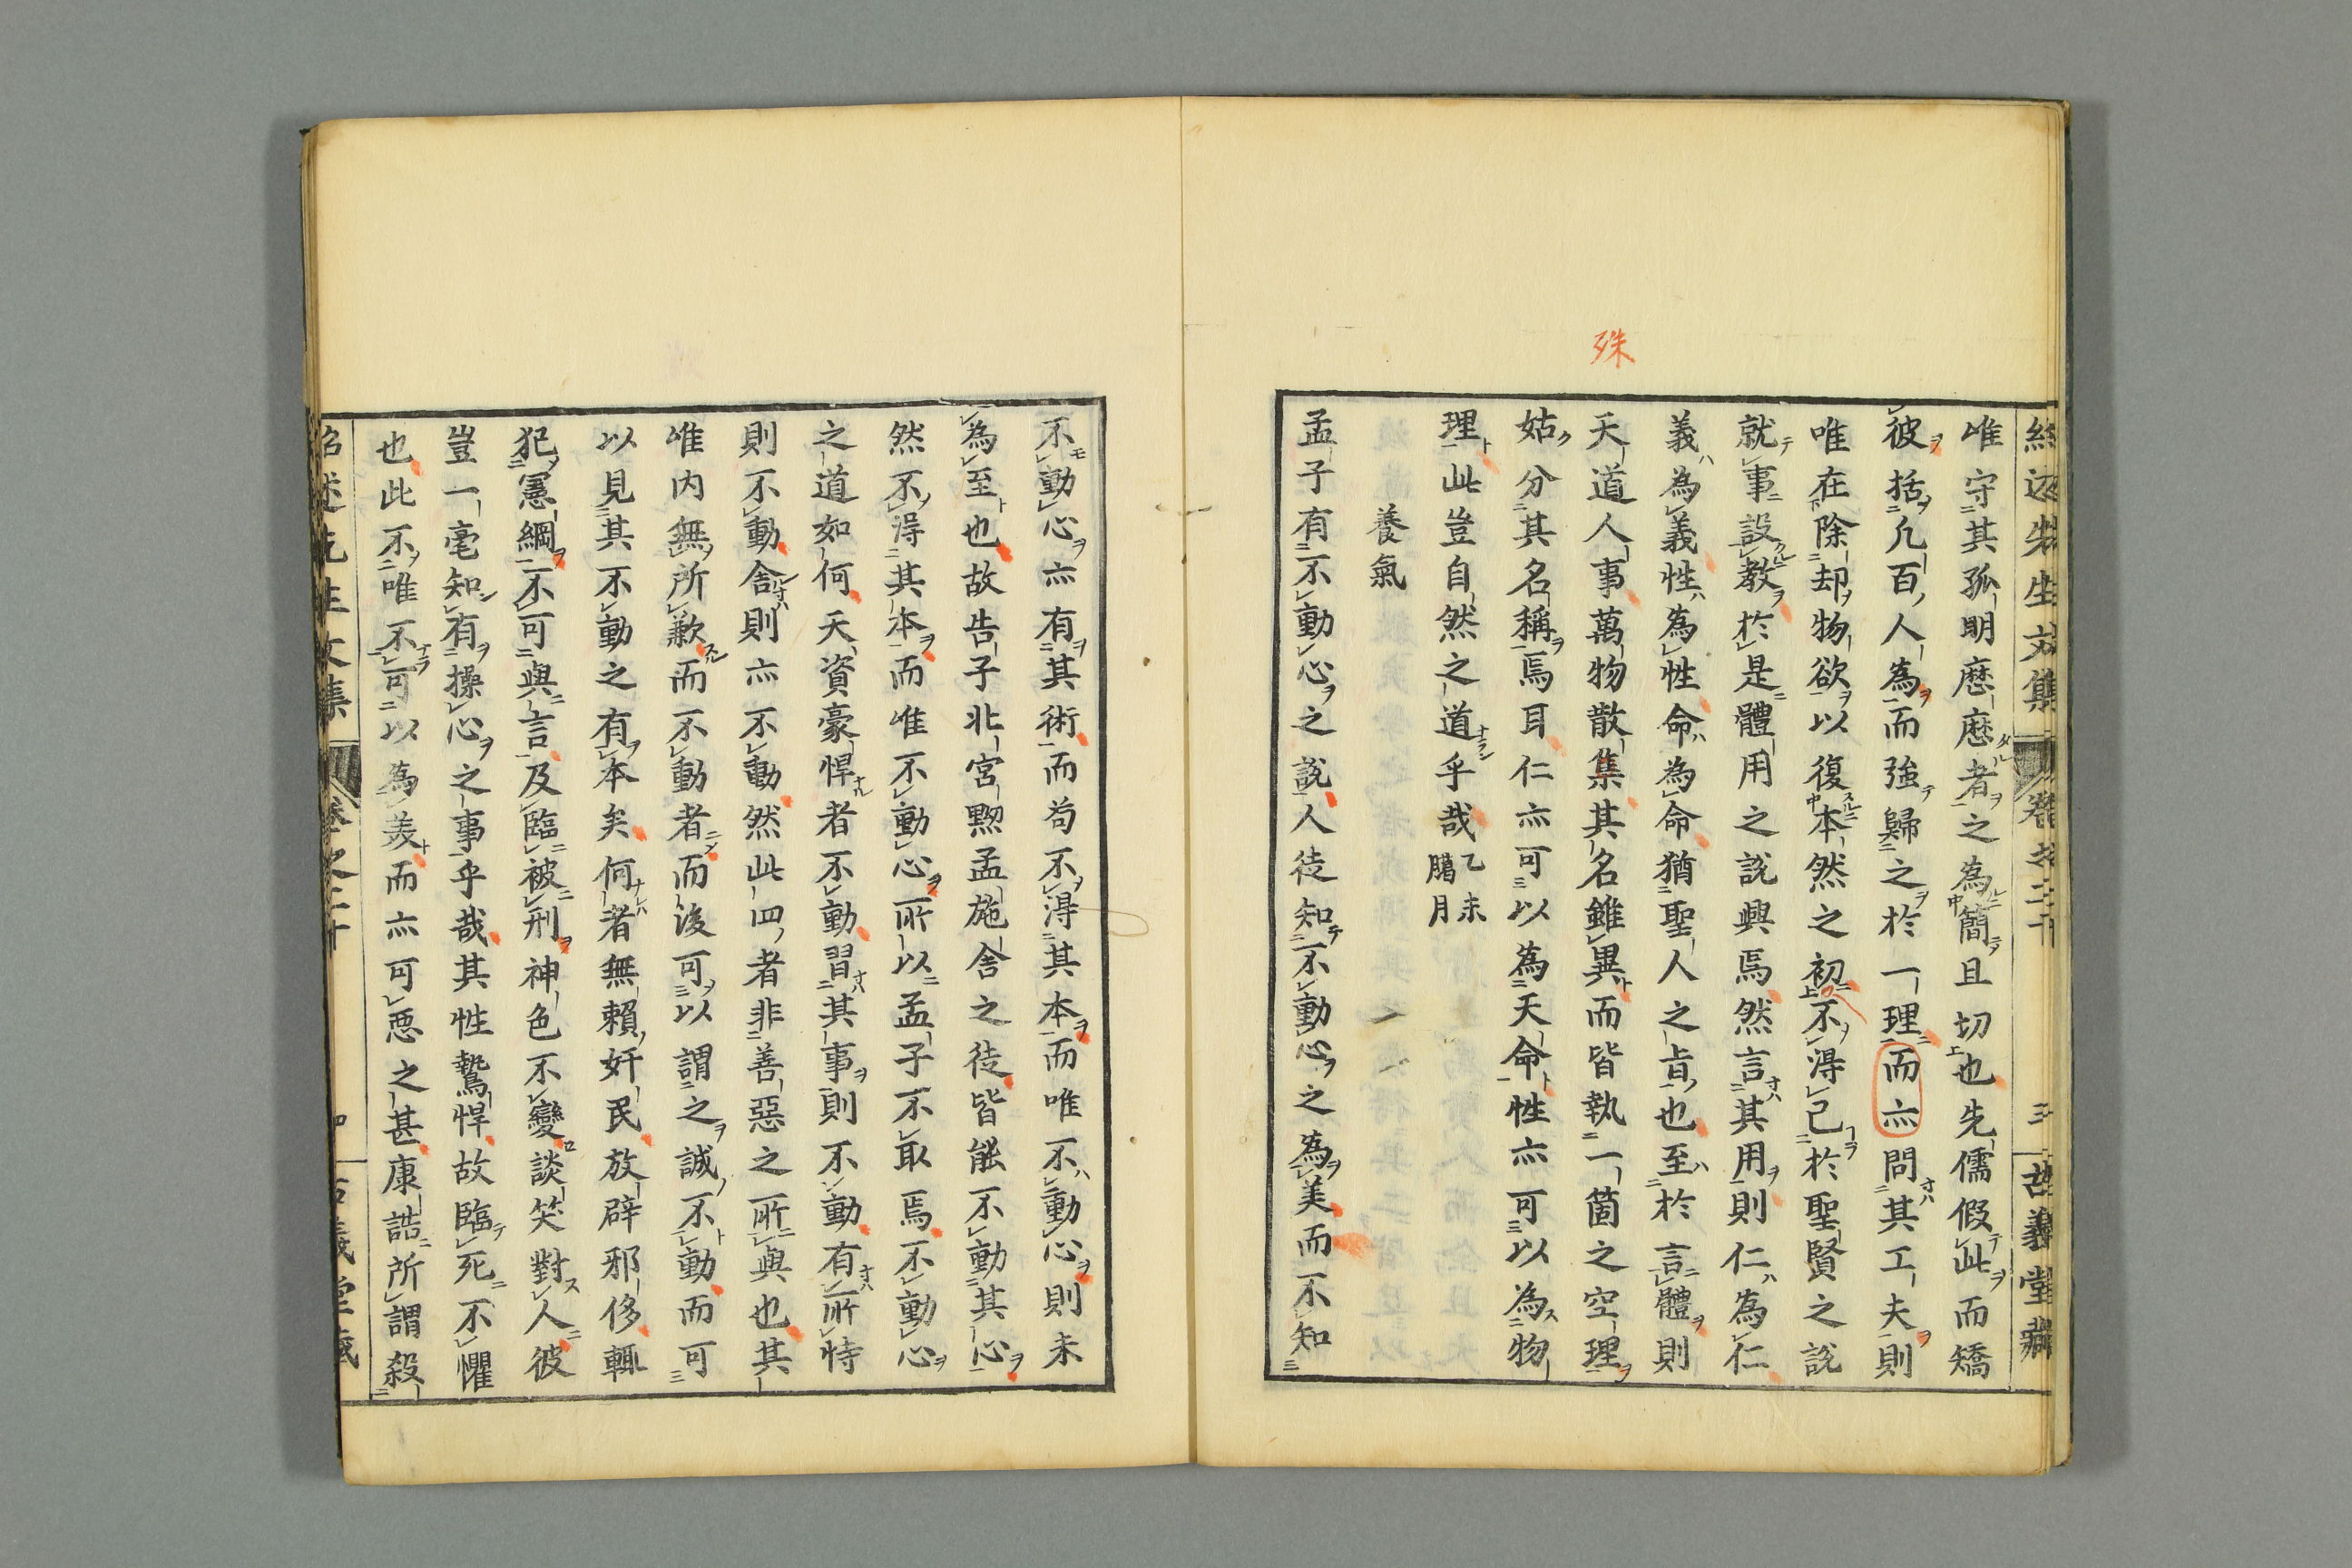 殊
紹述先生文集 卷之二十 三 古義堂藏
唯守其孤明歷歷者之為簡且切也先儒假此而矯
彼括凡百人為而強歸之於一理而亦問其工夫則
唯在除却物欲以復本然之初不得已於聖賢之說
就事設教於是體用之說興焉然言其用則仁為仁
義為義性為性命為命猶聖人之旨也至於言體則
天道人事萬物散集其名雖異而皆執一箇之空理
姑分其名稱焉耳仁亦可以為天命性亦可以為物
理此豈自然之道乎哉乙未臈月
養氣
孟子有不動心之說人徒知不動心之為美而不知
不動心亦有其術而苟不得其本而唯不動心則未
為至也故告子北宮黝孟施舍之徒皆能不動其心
然不得其本而唯不動心所以孟子不取焉不動心
之道如何天資豪悍者不動習其事則不動有所恃
則不動舍則亦不動然此四者非善惡之所與也其
唯内無所歉而不動者而後可以謂之誠不動而可
以見其不動之有本矣何者無賴奸民放辟邪侈輒
犯憲綱不可與言及臨被刑神色不變談笑對人彼
豈一毫知有操心之事乎哉其性鷙悍故臨死不懼
也此不唯不可以為美而亦可惡之甚康誥所謂殺
紹述先生文集 卷之二十 四 古義堂藏